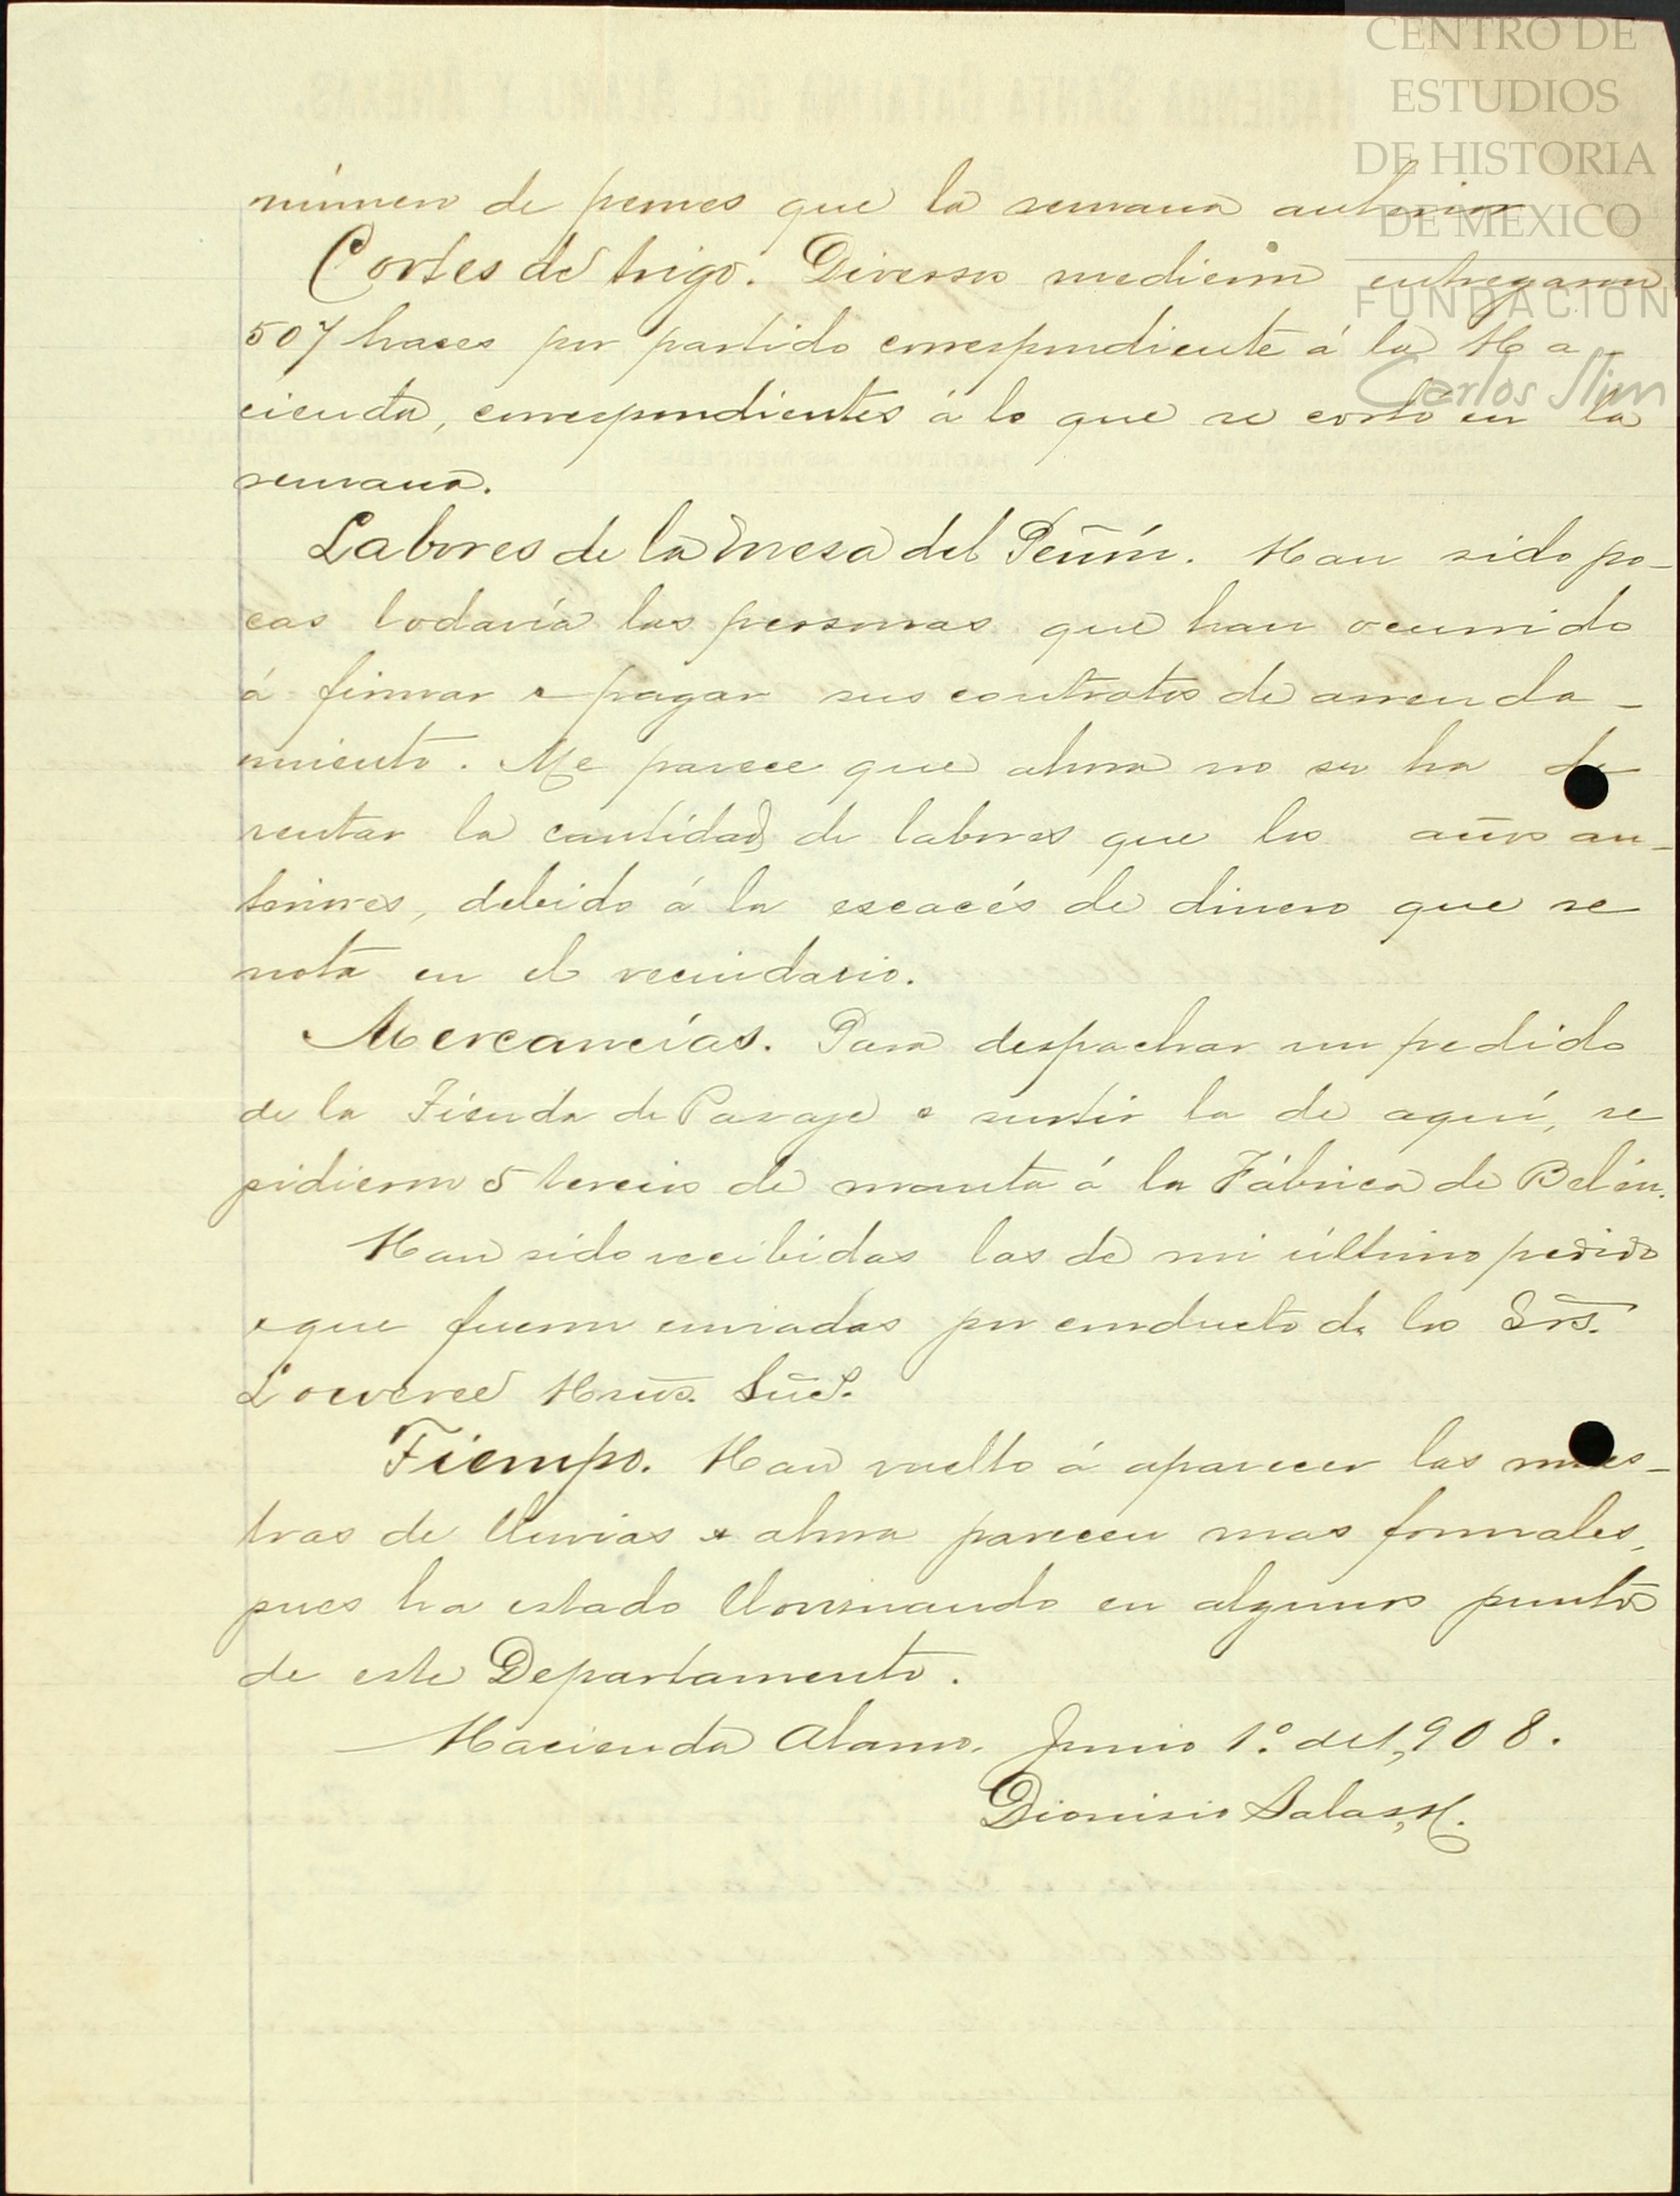 CENTRO DE
ESTUDIOS
DE HISTORIA
DE MEXICO
FUNDACIÓN
Carlos Slim
HACIENDA SANTA CATALINA DEL ALAMO Y ANEXAS.
número de peones que la semana anterior
Cortes de trigo. Diversos medieros entregaron
507 haces por partido correspondiente á la Ha-
cienda, correspondientes á lo que se cortó en la
semana.
Labores de la Mesa del Peñón. Han sido po-
cas todavía las personas que han ocurrido
á firmar y pagar sus contratos de arrenda-
miento. Me parece que ahora no se ha de
rentar la cantidad de labores que los años an-
teriores, debido á la escacés de dinero que se
nota en el vecindario.
Mercancías. Para despachar un pedido
de la Tienda de Pasaje y surtir la de aquí, se
pidieron 5 tercios de manta á la Fábrica de Belén.
Han sido recibidas las de mi último pedido
y que fueron enviadas por conducto de los Srs.
Lowere Hnos. Suc.
Tiempo. Han vuelto á aparecer las mues-
tras de lluvias y ahora parecen mas formales,
pues ha estado lloviznando en algunos puntos
de este Departamento.
Hacienda Alamo, Junio 1º de 1,908.
Dionisio Salas, H.